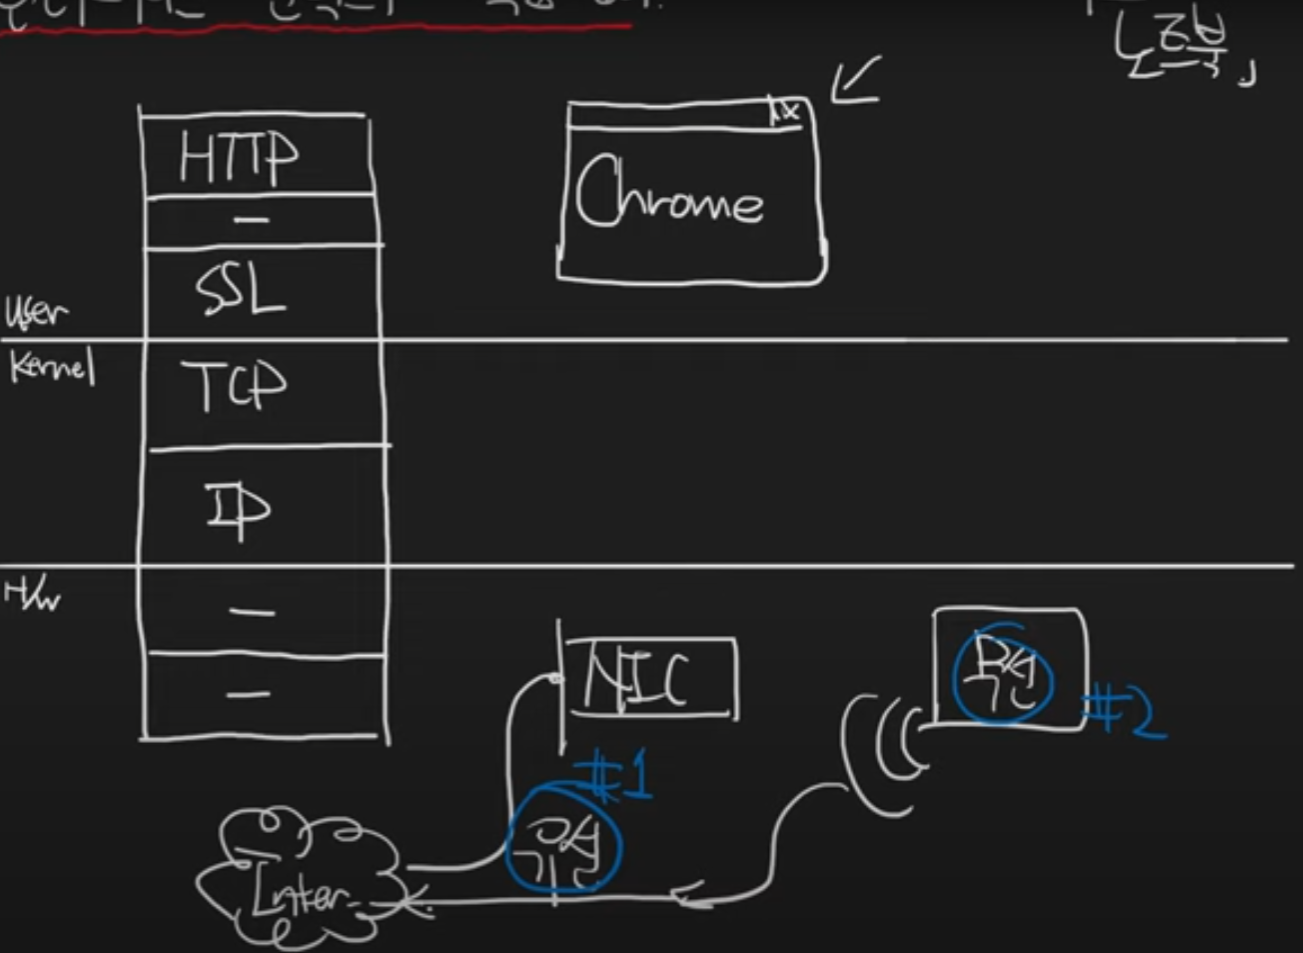 HTTP
—
SSL
User
Kernel
TCP
IP
H/W
—
—
Chrome
X
NIC
#1
유선
무선
#2
Inter